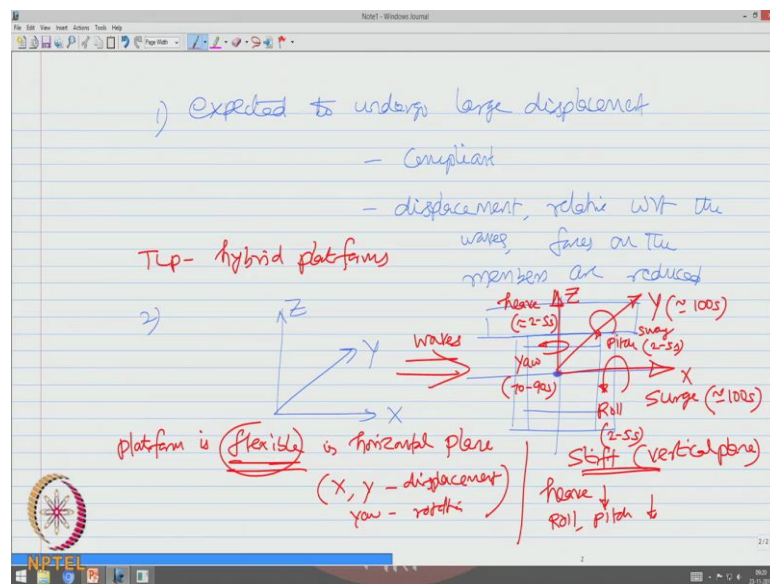 Note1 - Windows Journal
File Edit View Insert Actions Tools Help
Page Width
1) expected to undergo large displacement
- Compliant
- displacement, relative wrt the
waves, forces on the
members are reduced
TLP - hybrid platforms
2)
Z
Y
X
waves
heave
(≈2-5s)
Z
Y (≃100s)
sway
pitch
(2-5s)
yaw
(70-90s)
X
Surge (≃100s)
Roll
(2-5s)
platform is flexible is horizontal plane
(X, Y - displacement
yaw - rotatn)
Stiff (vertical plane)
heave ↓
Roll, pitch ↓
NPTEL
2
2/2